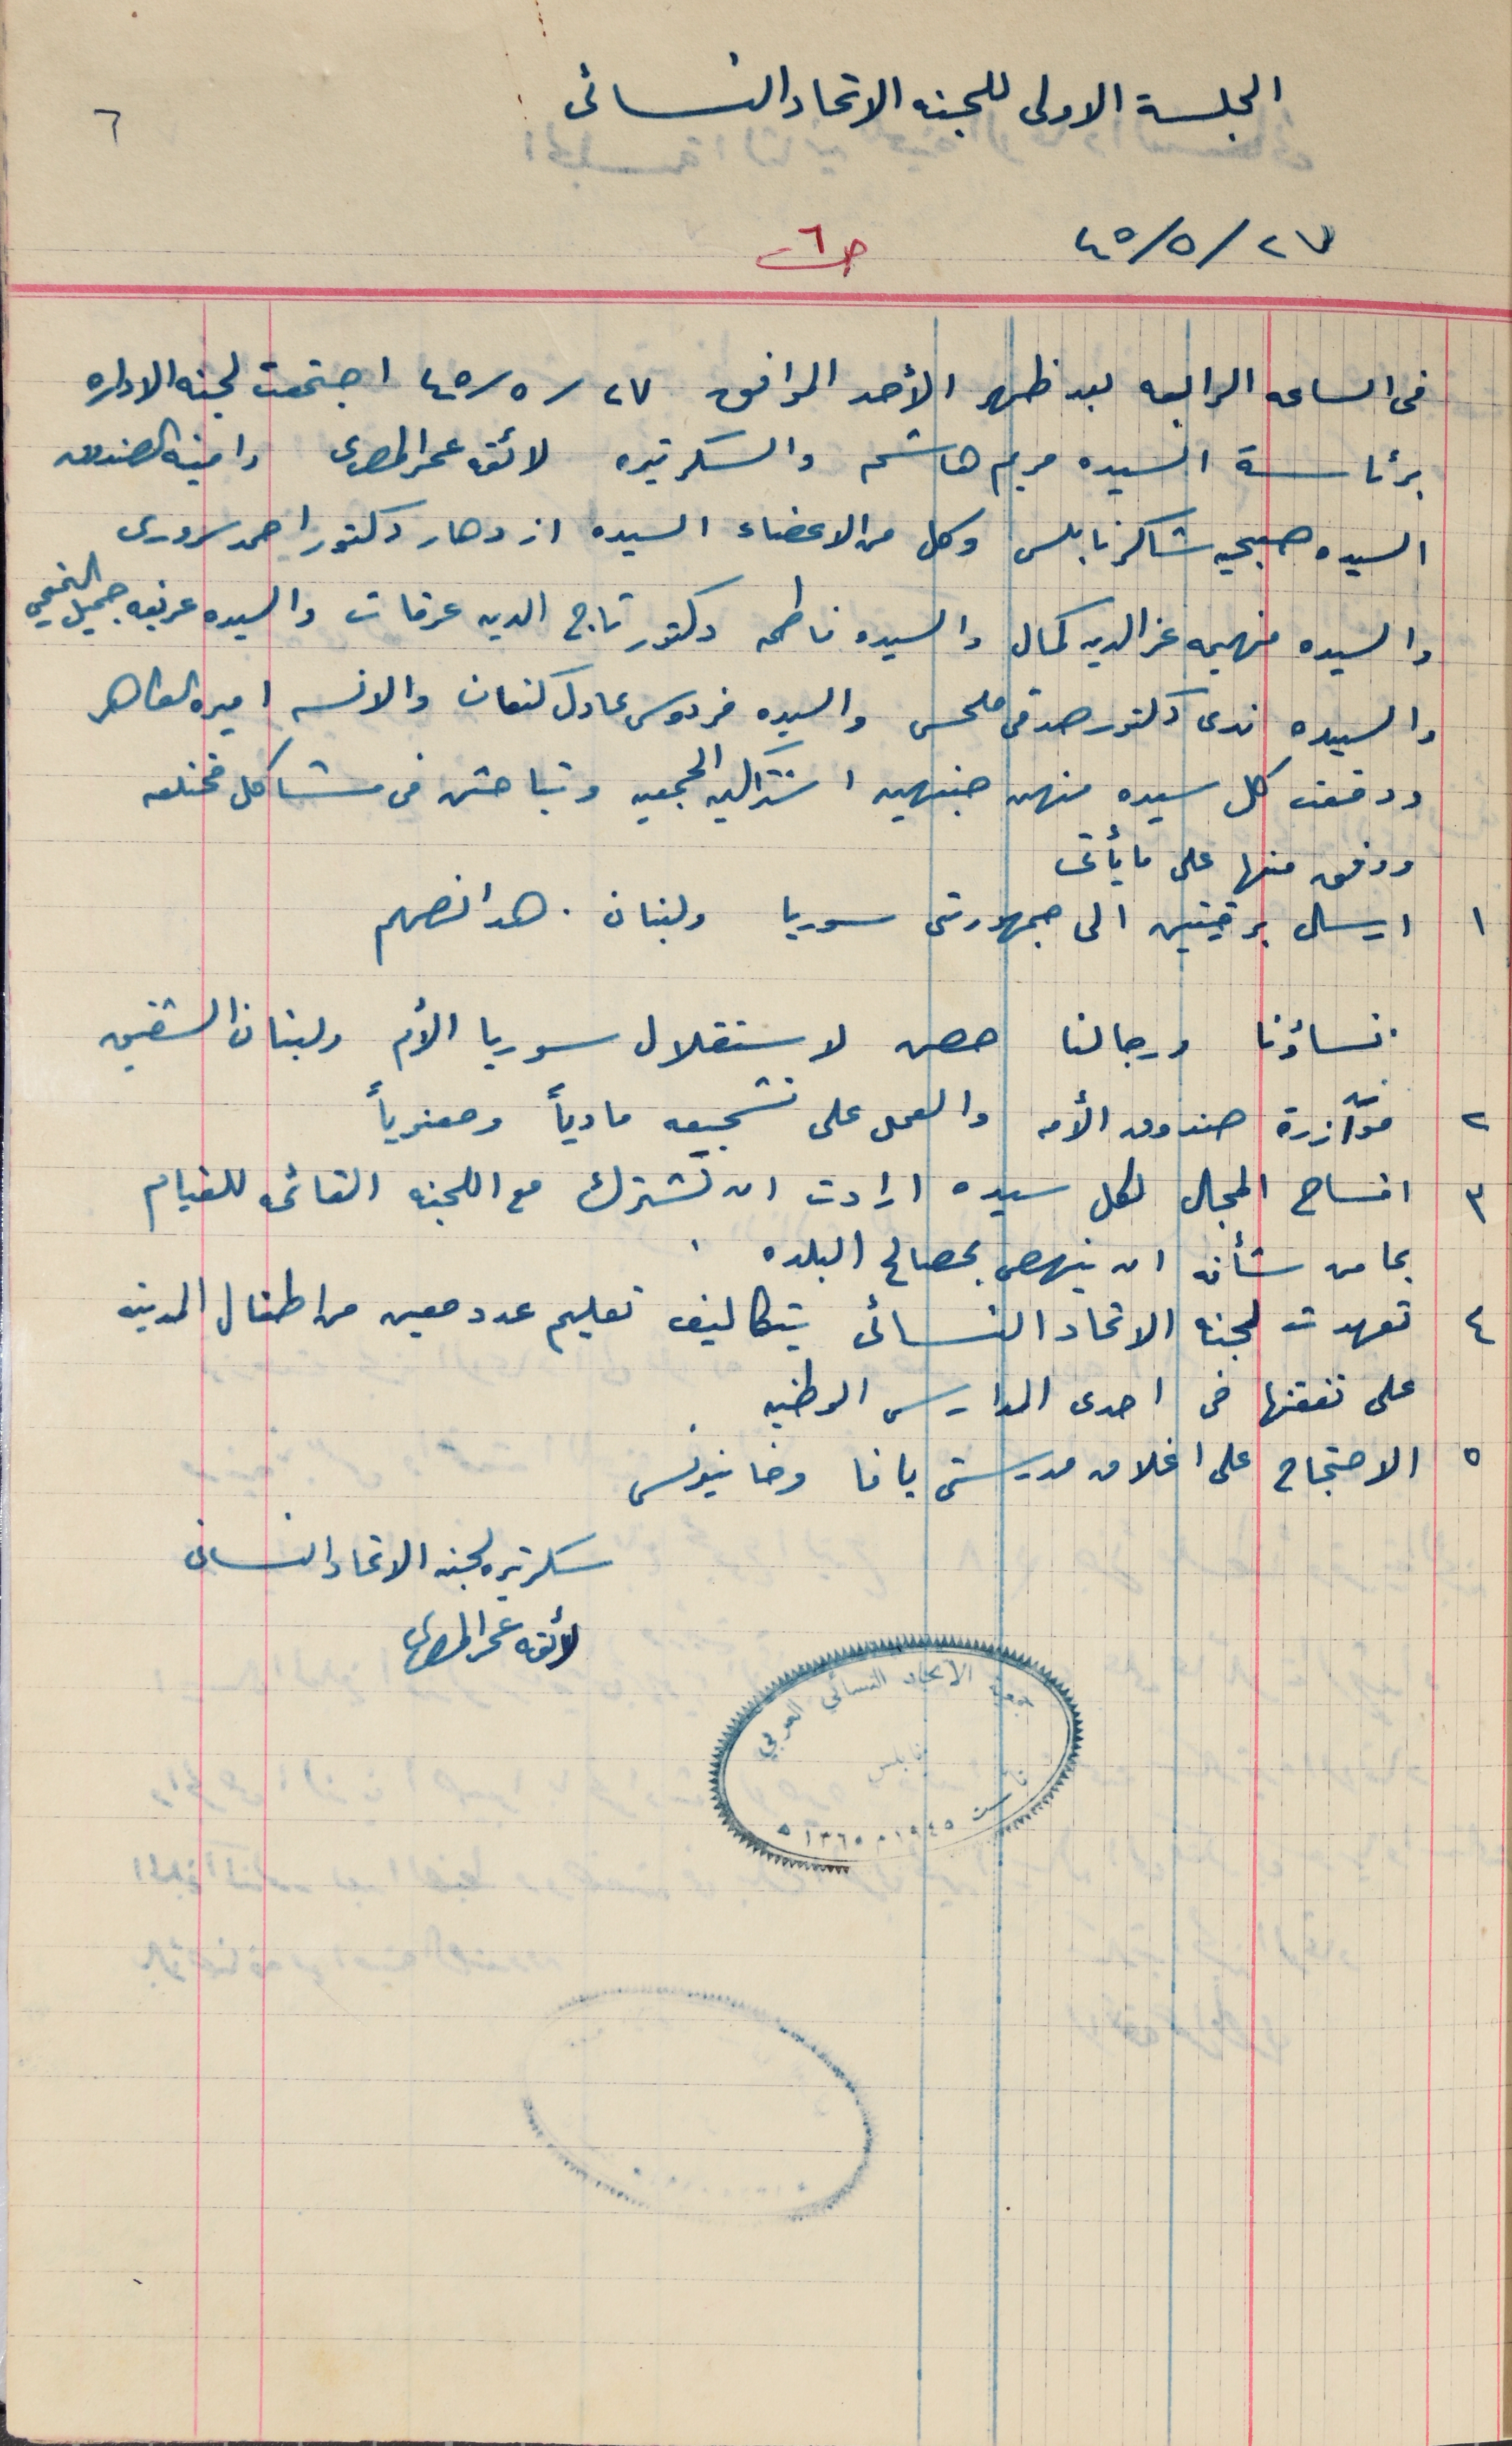 الجلسة الاولى للجنه الاتحاد النسائى
٦
٢٧/٥/٤٥
ص٦
فى الساعه الرابعه بعد ظهر الأحد الموافق ٢٧/٥/٤٥ اجتمعت لجنه الاداره
برئاسة السيده مريم هاشم والسكرتيره لائقه عمر المصرى وامينه الصندوق
السيده صبحيه شاكر نابلسى وكل من الاعضاء السيده ازدهار دكتور احمد سرورى
والسيده فهيمه عز الدين كمال والسيده فاطمه دكتور تاج الدين عرفات والسيده عريفه جميل النمحي
والسيده ندى دكتور صدقى ملحس والسيده فردوس عادل كنعان والانسه اميره الظاهر
ودفعت كل سيده منهن جنيهين اشتراكيه الجمعيه وتباحثن فى مشاكل مختلفه
ووفق منها على ما يأتى
١ ارسال برقيتين الى جمهوريتى سوريا ولبنان . هذا نصهم
نساؤنا ورجالنا حصن لاستقلال سوريا الأم ولبنان الشقيق
٢ مؤآزرة صندوق الأمه والعمل على تشجيعه مادياً ومعنوياً
٣ افساح المجال لكل سيده ارادت ان تشترك مع اللجنه القائمه للقيام
بما من شأنه ان ينهض بمصالح البلده .
٤ تعهدت لجنه الاتحاد النسائى بتكاليف تعليم عدد معين من اطفال المدينه
على نفقتها فى احدى المدارس الوطنيه
٥ الاحتجاج على اغلاق مدرستى يافا وخانيونس
سكرتيره لجنه الاتحاد النسائى
لائقه عمر المصرى
جمعية الاتحاد النسائي العربي
نابلس
تأسست ١٩٤٥